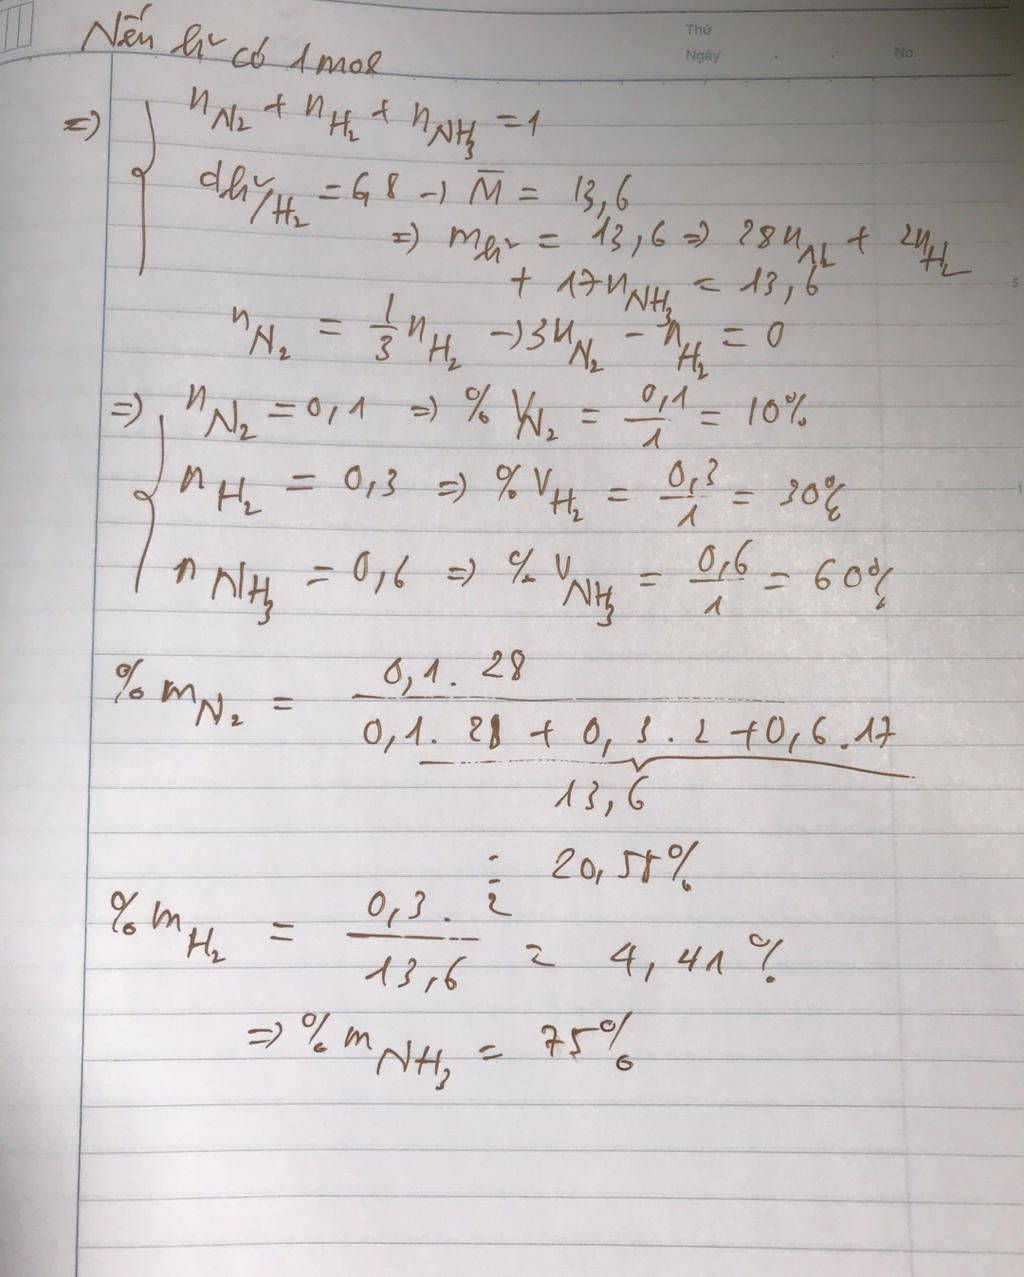 Thứ
Ngày . . No.
Nếu h² có 1 mol
=> n_N₂ + n_H₂ + n_NH₃ = 1
d h²/H₂ = 6,8 -> M̄ = 13,6
=> m h² = 13,6 => 28n_N₂ + 2n_H₂
+ 17n_NH₃ = 13,6
n_N₂ = 1/3 n_H₂ -> 3n_N₂ - n_H₂ = 0
=> n_N₂ = 0,1 => % V_N₂ = 0,1/1 = 10%
n_H₂ = 0,3 => % V_H₂ = 0,3/1 = 30%
n_NH₃ = 0,6 => % V_NH₃ = 0,6/1 = 60%
% m_N₂ = 0,1 . 28
0,1 . 28 + 0,3 . 2 + 0,6 . 17
13,6
= 20,58%
% m_H₂ = 0,3 . 2 / 13,6 = 4,41%
=> % m_NH₃ = 75%